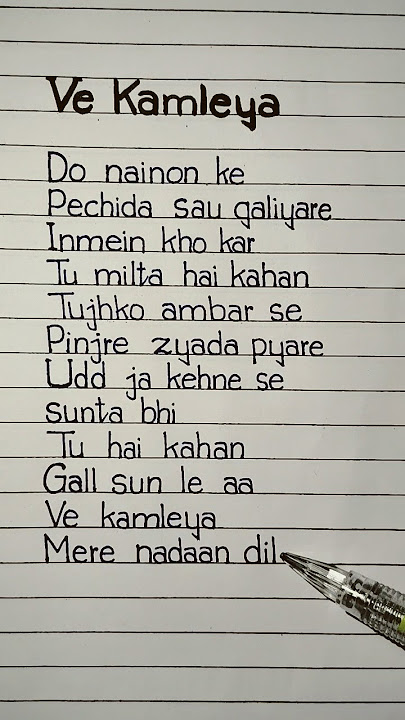 Ve Kamleya
Do nainon ke
Pechida sau galiyare
Inmein kho kar
Tu milta hai kahan
Tujhko ambar se
Pinjre zyada pyare
Udd ja kehne se
sunta bhi
Tu hai kahan
Gall sun le aa
Ve kamleya
Mere nadaan dil